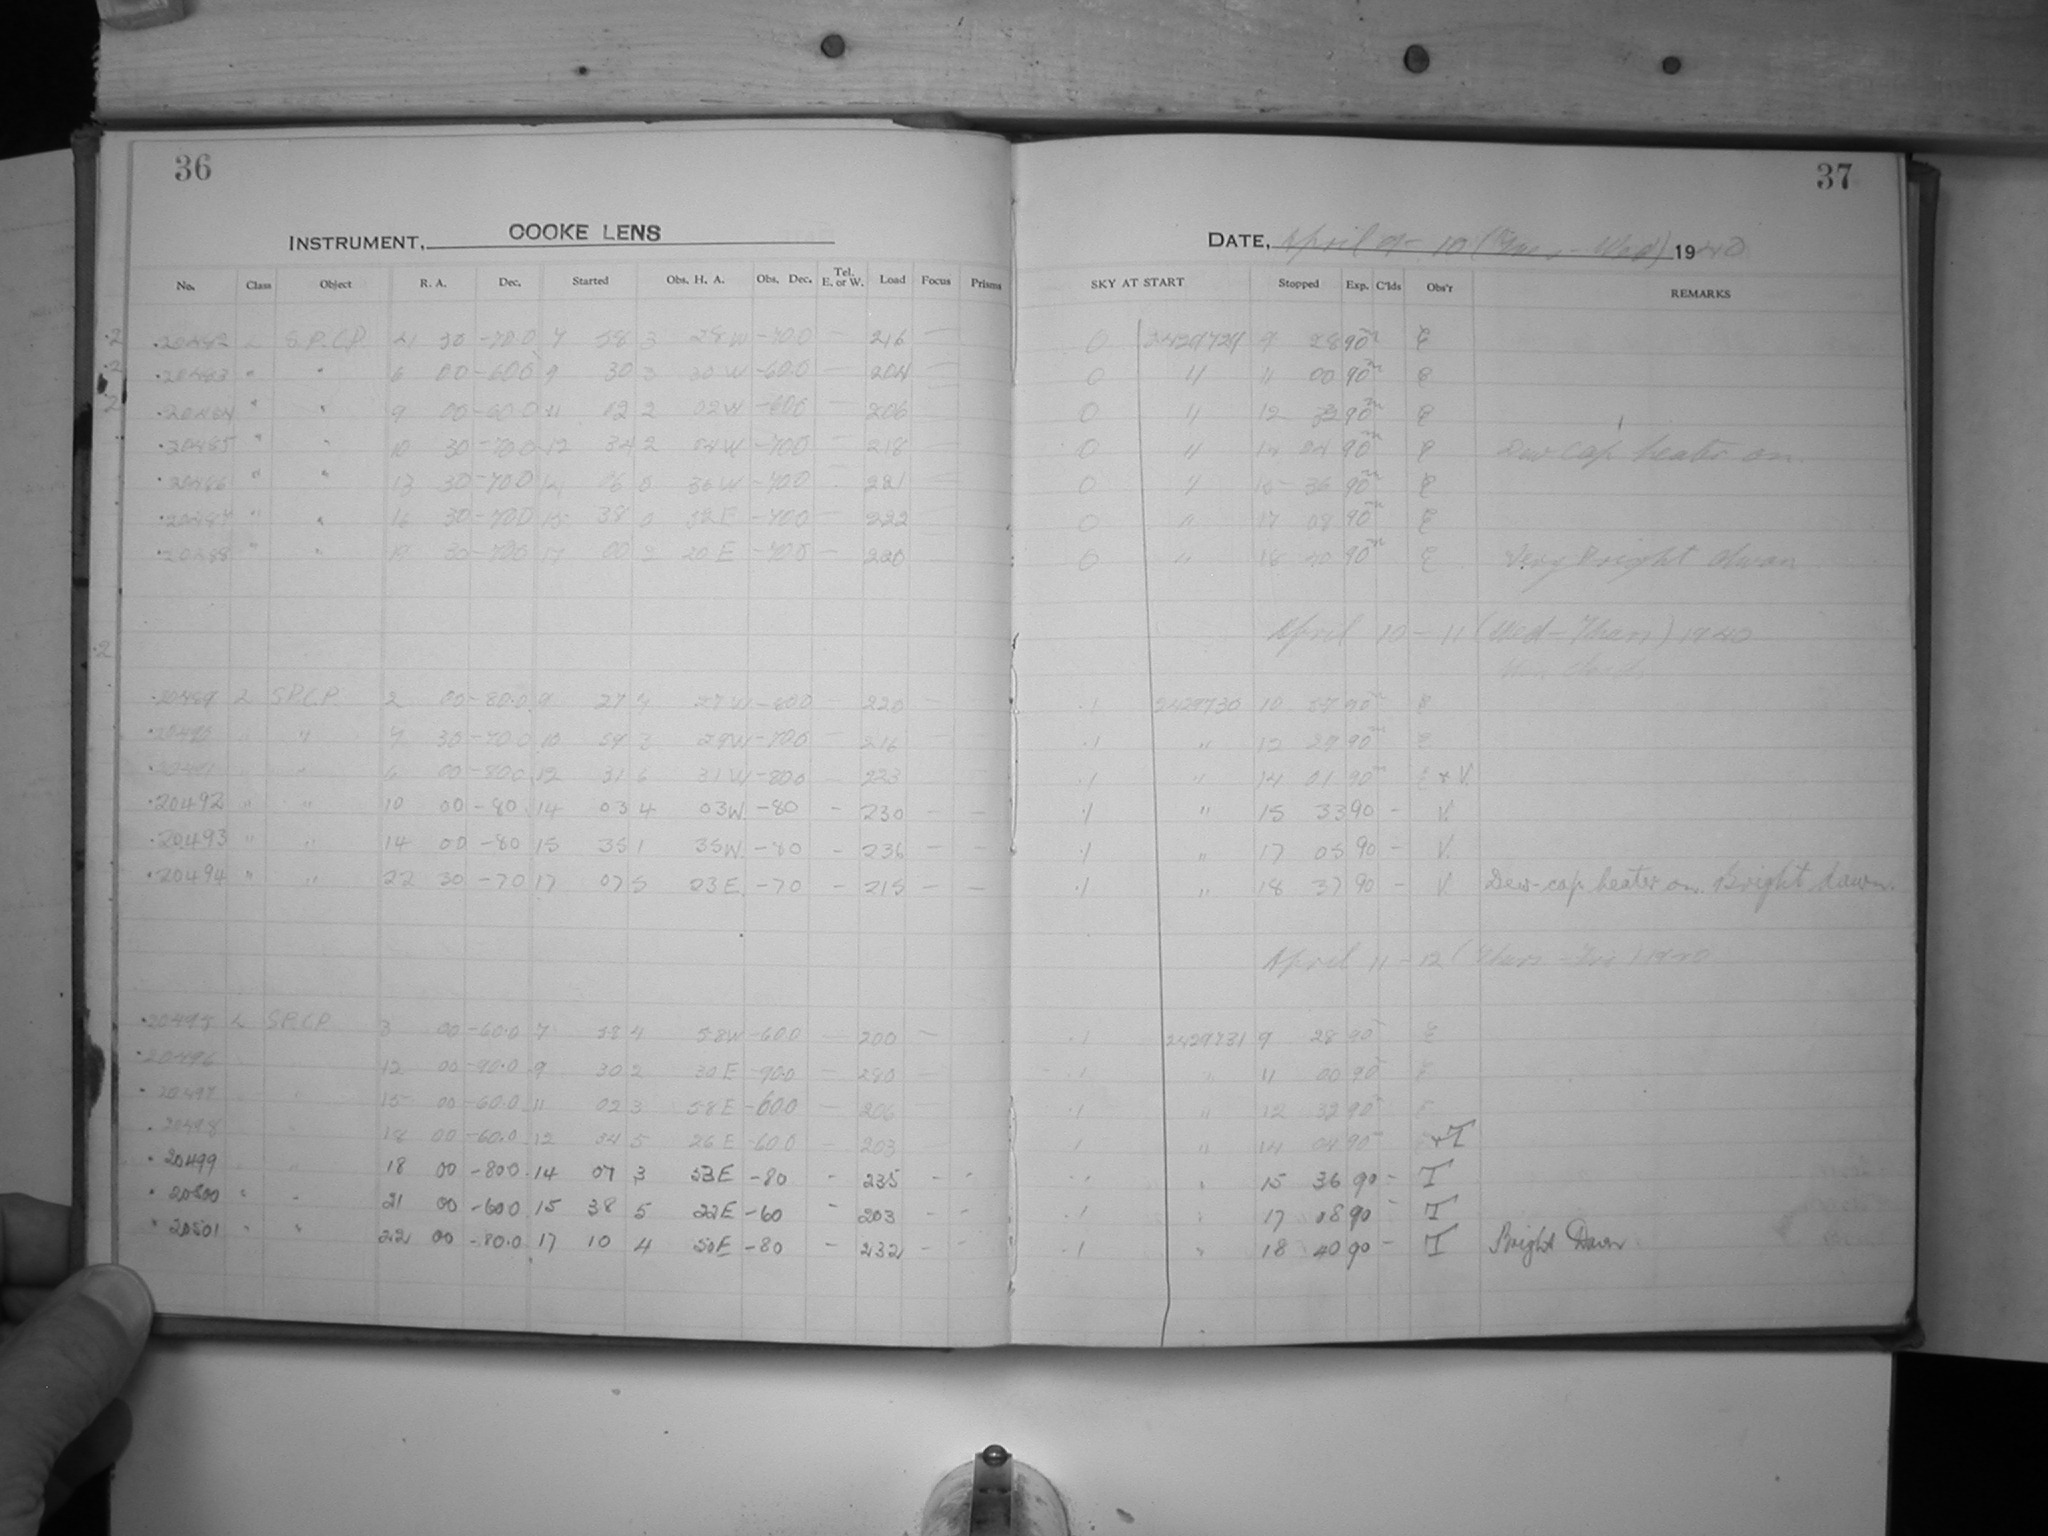 36
INSTRUMENT, COOKE LENS
No. Class Object R. A. Dec. Started Obs. H. A. Obs. Dec. Tel. E. or W. Load Focus Prisms
20482 L S.P.C.P. 30 -70.0 7 58 3 28 W -70.0 — 216 —
20483 " " 6 00 -60.0 9 30 3 30 W -60.0 — 204 —
20484 " " 9 00 -60.0 11 02 2 02 W -60.0 — 206 —
20485 " " 10 30 -70.0 12 34 2 04 W -70.0 — 218 —
20486 " " 13 30 -70.0 14 06 0 36 W -70.0 — 221 —
20487 " " 16 30 -70.0 15 38 0 52 E -70.0 — 222 —
20488 " " 19 30 -70.0 17 20 E -70.0 — 220 —
20489 L S.P.C.P. 2 00 -80.0 9 27 27 W -80.0 — 220 —
20490 " " 7 30 -70.0 10 59 3 29 W -70.0 — 216 —
20491 " " 6 00 -80.0 12 31 6 31 W -80.0 — 223 —
20492 " " 10 00 -80 14 03 4 03 W. -80 - 230 - -
20493 " " 14 00 -80 15 35 1 35 W. -80 - 236 - -
20494 " " 22 30 -70 17 07 5 23 E. -70 - 215 - -
20495 L S.P.C.P. 3 00 -60.0 7 58 4 58 W -60.0 — 200 —
20496 12 00 -90.0 9 30 2 30 E -90.0 — 280 —
20497 " 15 00 -60.0 11 02 3 58 E -60.0 — 206 —
20498 " 18 00 -60.0 12 34 5 26 E -60.0 — 203 —
20499 " 18 00 -80.0 14 07 3 53 E -80 - 235 - -
20500 " " 21 00 -60.0 15 38 5 22 E -60 - 203 - -
20501 " " 22 00 -80.0 17 10 4 50 E -80 - 232 - -
37
DATE, April 9 - 10 (Tues - Wed) 1940
SKY AT START Stopped Exp. C'lds Obs'r REMARKS
0 2429729 9 28 90m E
0 " 11 00 90m E
0 " 12 32 90m E
0 " 14 04 90m E Dew cap heater on.
0 " 15 36 90m E
0 " 17 08 90m E
0 " 18 90m E Very Bright dawn
April 10 - 11 (Wed - Thur) 1940
.1 2429730 10 57 90m E
.1 " 12 29 90m E
.1 " 14 01 90m E + V.
.1 " 15 33 90 - V.
.1 " 17 05 90 - V.
.1 " 18 37 90 - V Dew-cap heater on. Bright dawn.
April 11 - 12 (Thurs - Fri) 1940
.1 2429731 9 28 90 E
.1 " 11 00 90 E
.1 " 12 32 90 E
.1 " 14 04 90 E + T
.1 " 15 36 90 - T
.1 " 17 08 90 - T
.1 " 18 40 90 - T Bright Dawn